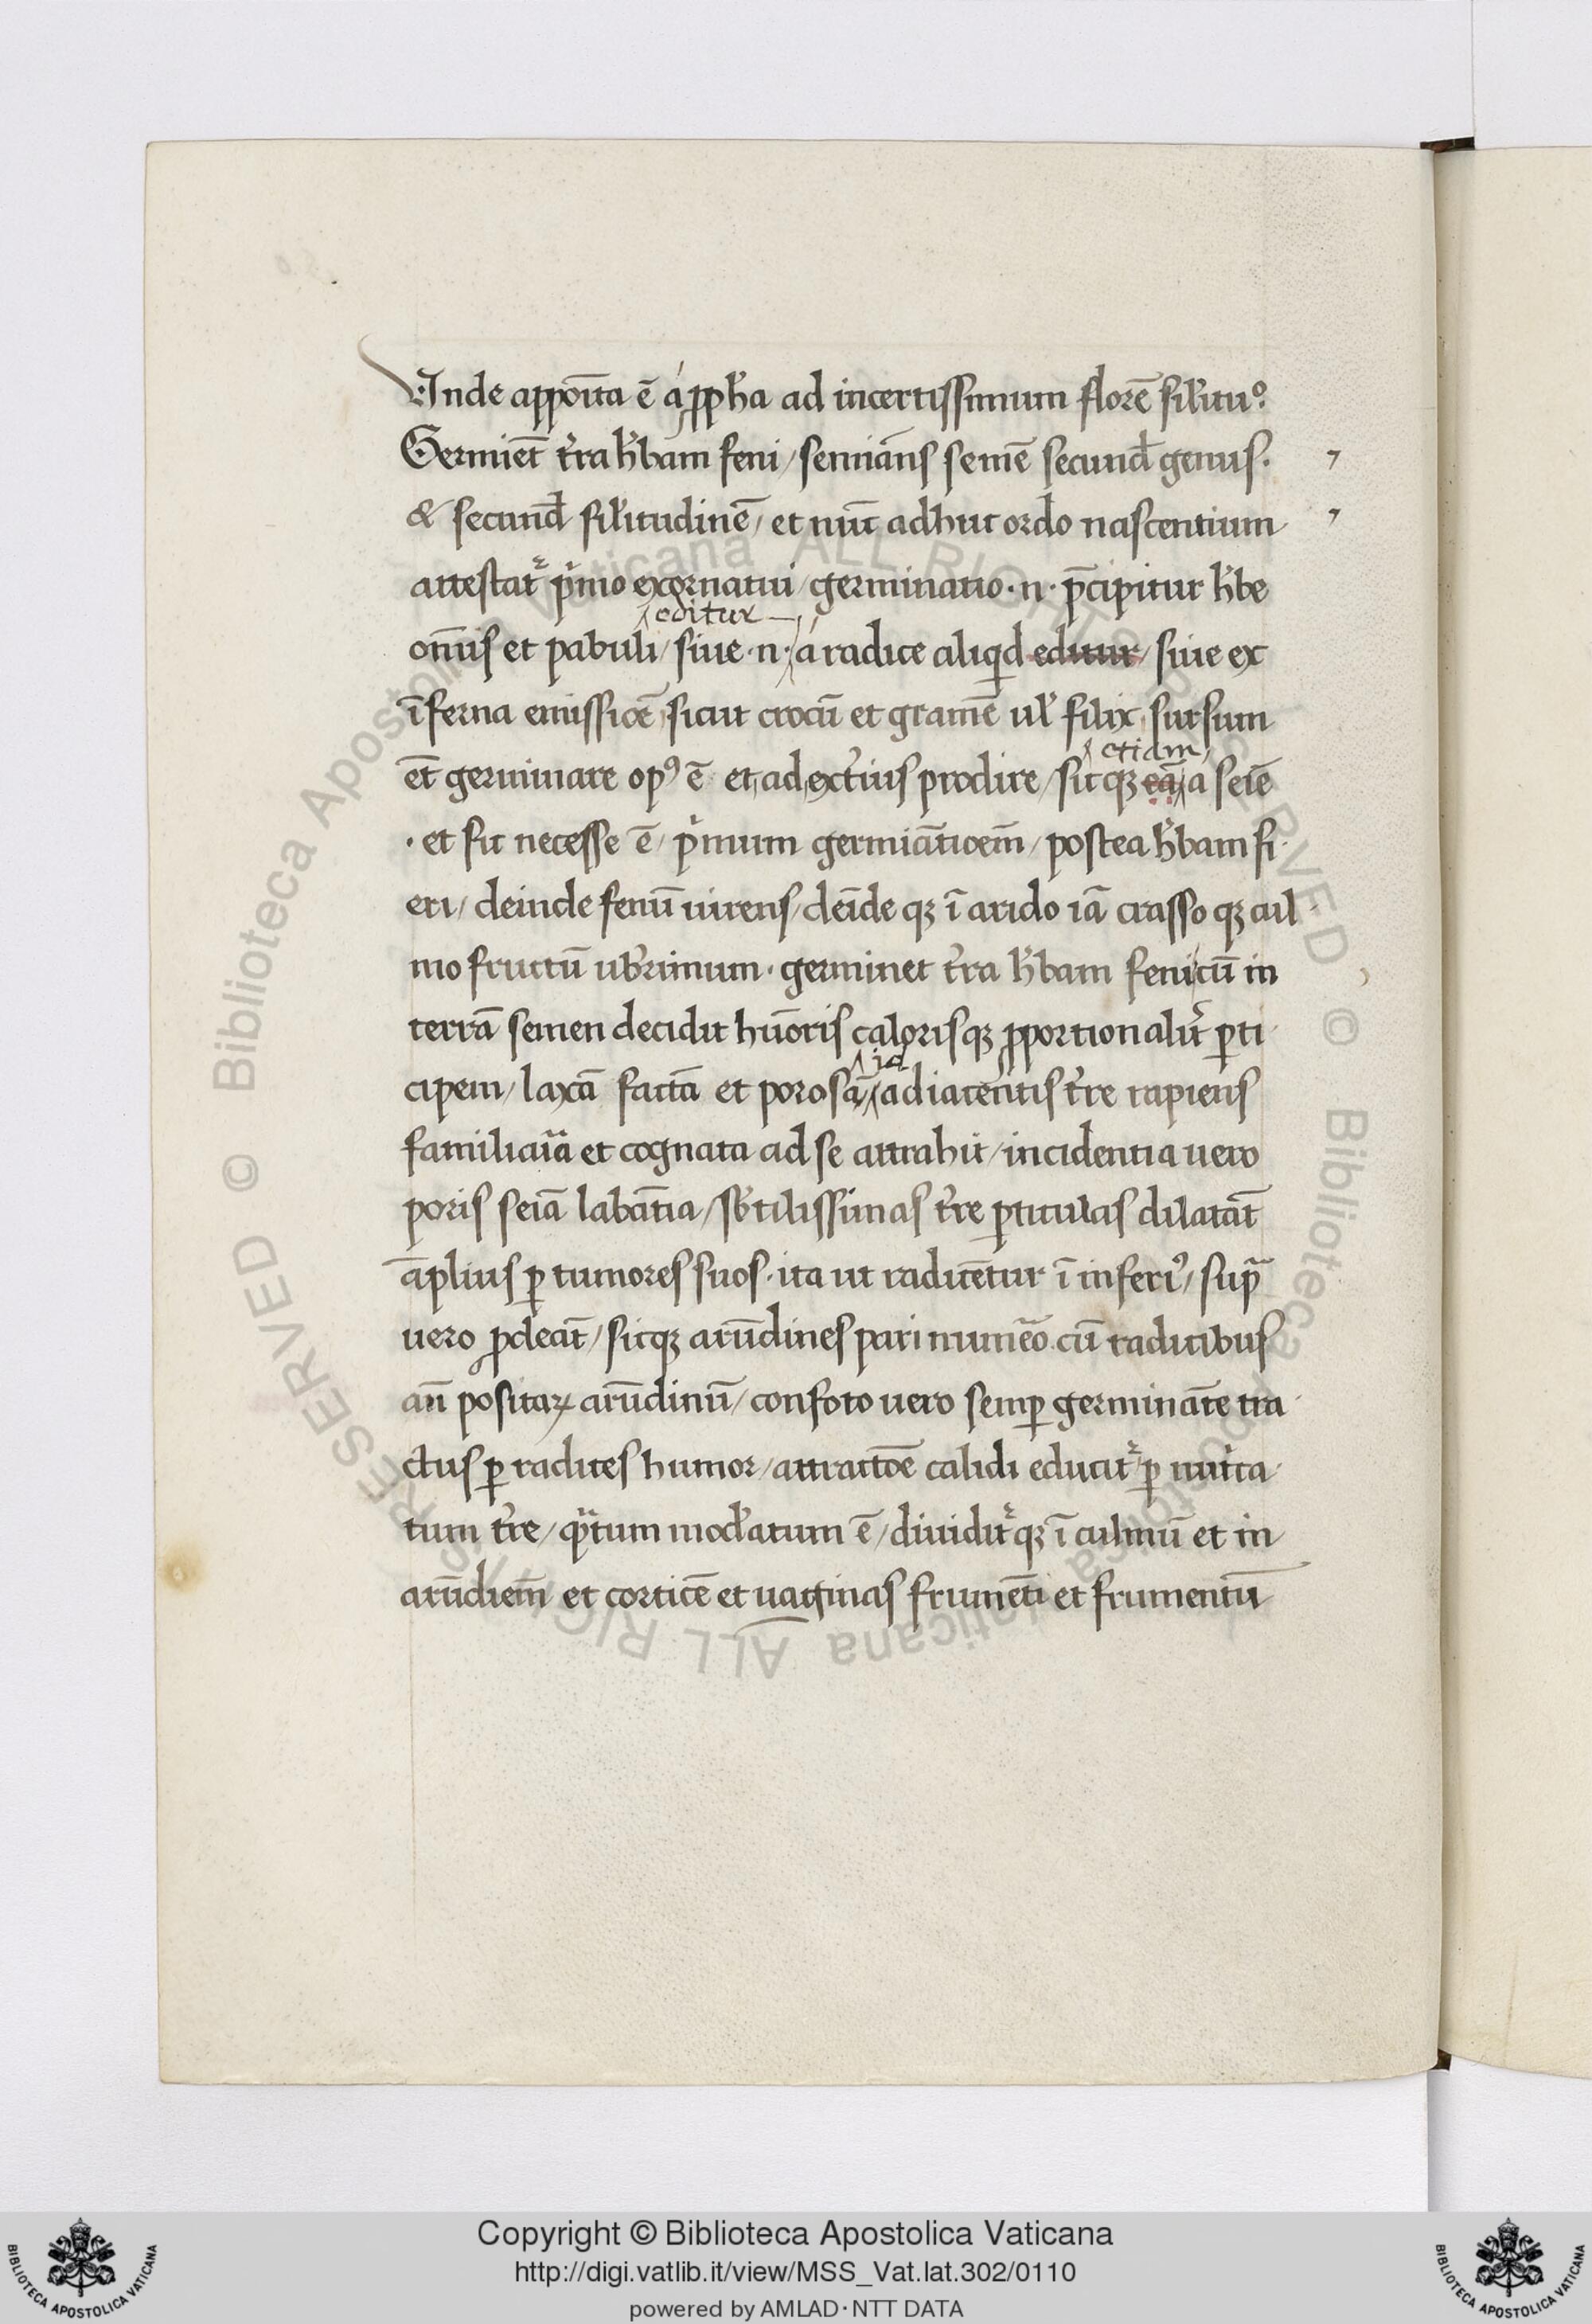 Unde apporta ē a ꝓph̄a ad incertissimum florē sil'itu⁹.
Germiet̄ t'ra h'bam feni / semiāns semē secund̄ genus.
& secund̄ sil'itudinē / et nūc adhuc ordo nascentium
attestat᷑ pͥmo exornatui / germinatio · n · p̄cipitur h'be
editur
om̄is et pabuli / siue · n · a radice aliqͥd editur / siue ex
īferna emissiōe sicut crocū et gramē ul' filix sursum
etiam
et̄ germinare op⁹ ē et ad ext'ius prodire / sicqꝫ eā a seīe
· et sic necesse ē / pͥmum germiāt̄ioem̄ / postea h'bam fi
eri / deinde fenū uirens / deīde qꝫ ī arido iā crasso qꝫ cul
mo fructū ub'rimum · germinet t'ra h'bam feni cū in
terrā semen decidit hūoris calorisqꝫ ꝓportionalit' ꝑti
id
cipem / laxā factā et porosā / adiacentis t're rapiens
familiaͥa et cognata ad se attrahit / incidentia uero
poris seīa labāntia / sb'tilissimas t're ꝑticulas dilatāt
āplius ꝑ tumores suos · ita ut radicētur ī inferi⁹ / supͣ
uero ꝓdeāt / sicqꝫ arūdines pari numeͣo cū radicibus
an̄ positaꝝ arūdinū / confoto uero semꝑ germināte tra
ctus ꝑ radices humor / attractōe calidi educit᷑ ꝑ nut'ca
tum t're / qͣtum mod'atum ē / diuidit᷑ qꝫ ī culmū et in
arūdiem̄ et corticē et uaginas frumēti et frumentū
Copyright © Biblioteca Apostolica Vaticana
http://digi.vatlib.it/view/MSS_Vat.lat.302/0110
powered by AMLAD·NTT DATA